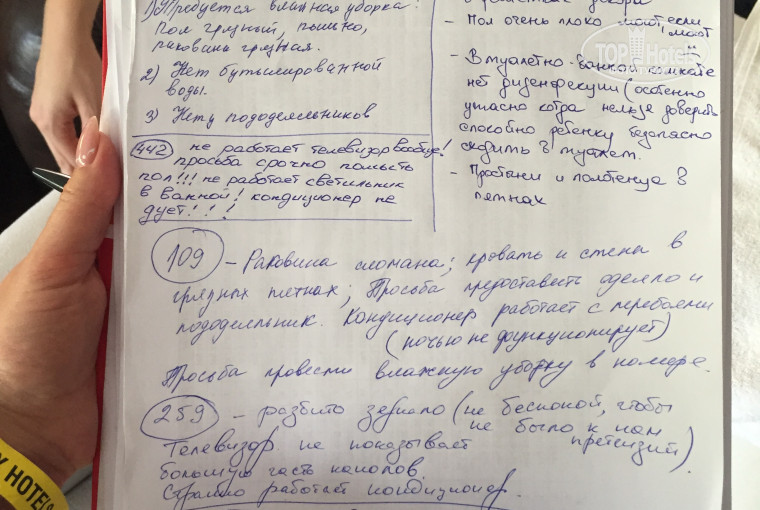 1) Требуется влажная уборка!
Пол грязный, пыльно,
раковина грязная.
2) Нет бутылированной
воды.
3) Нету пододеяльников
442 не работает телевизор вообще!
просьба срочно помыть
пол!!! не работает светильник
в ванной! кондиционер не
дует!!!
- Пол очень плохо моют, если
моют
- В туалетно-ванной комнате
нет дизенфекции (особенно
ужасно когда нельзя доверить
спокойно ребенку безопасно
сходить в туалет.
- Простыни и полотенца в
пятнах
109 - Раковина сломана; кровать и стены в
грязных пятнах; Просьба предоставить одеяло и
пододеяльник. Кондиционер работает с перебоями
(ночью не функционирует)
Просьба провести влажную уборку в номере.
259 - разбито зеркало (не беспокой, чтобы
не было к нам
претензий)
Телевизор не показывает
большую часть каналов.
Странно работает кондиционер.
TOP Hotels
Y HOTEL